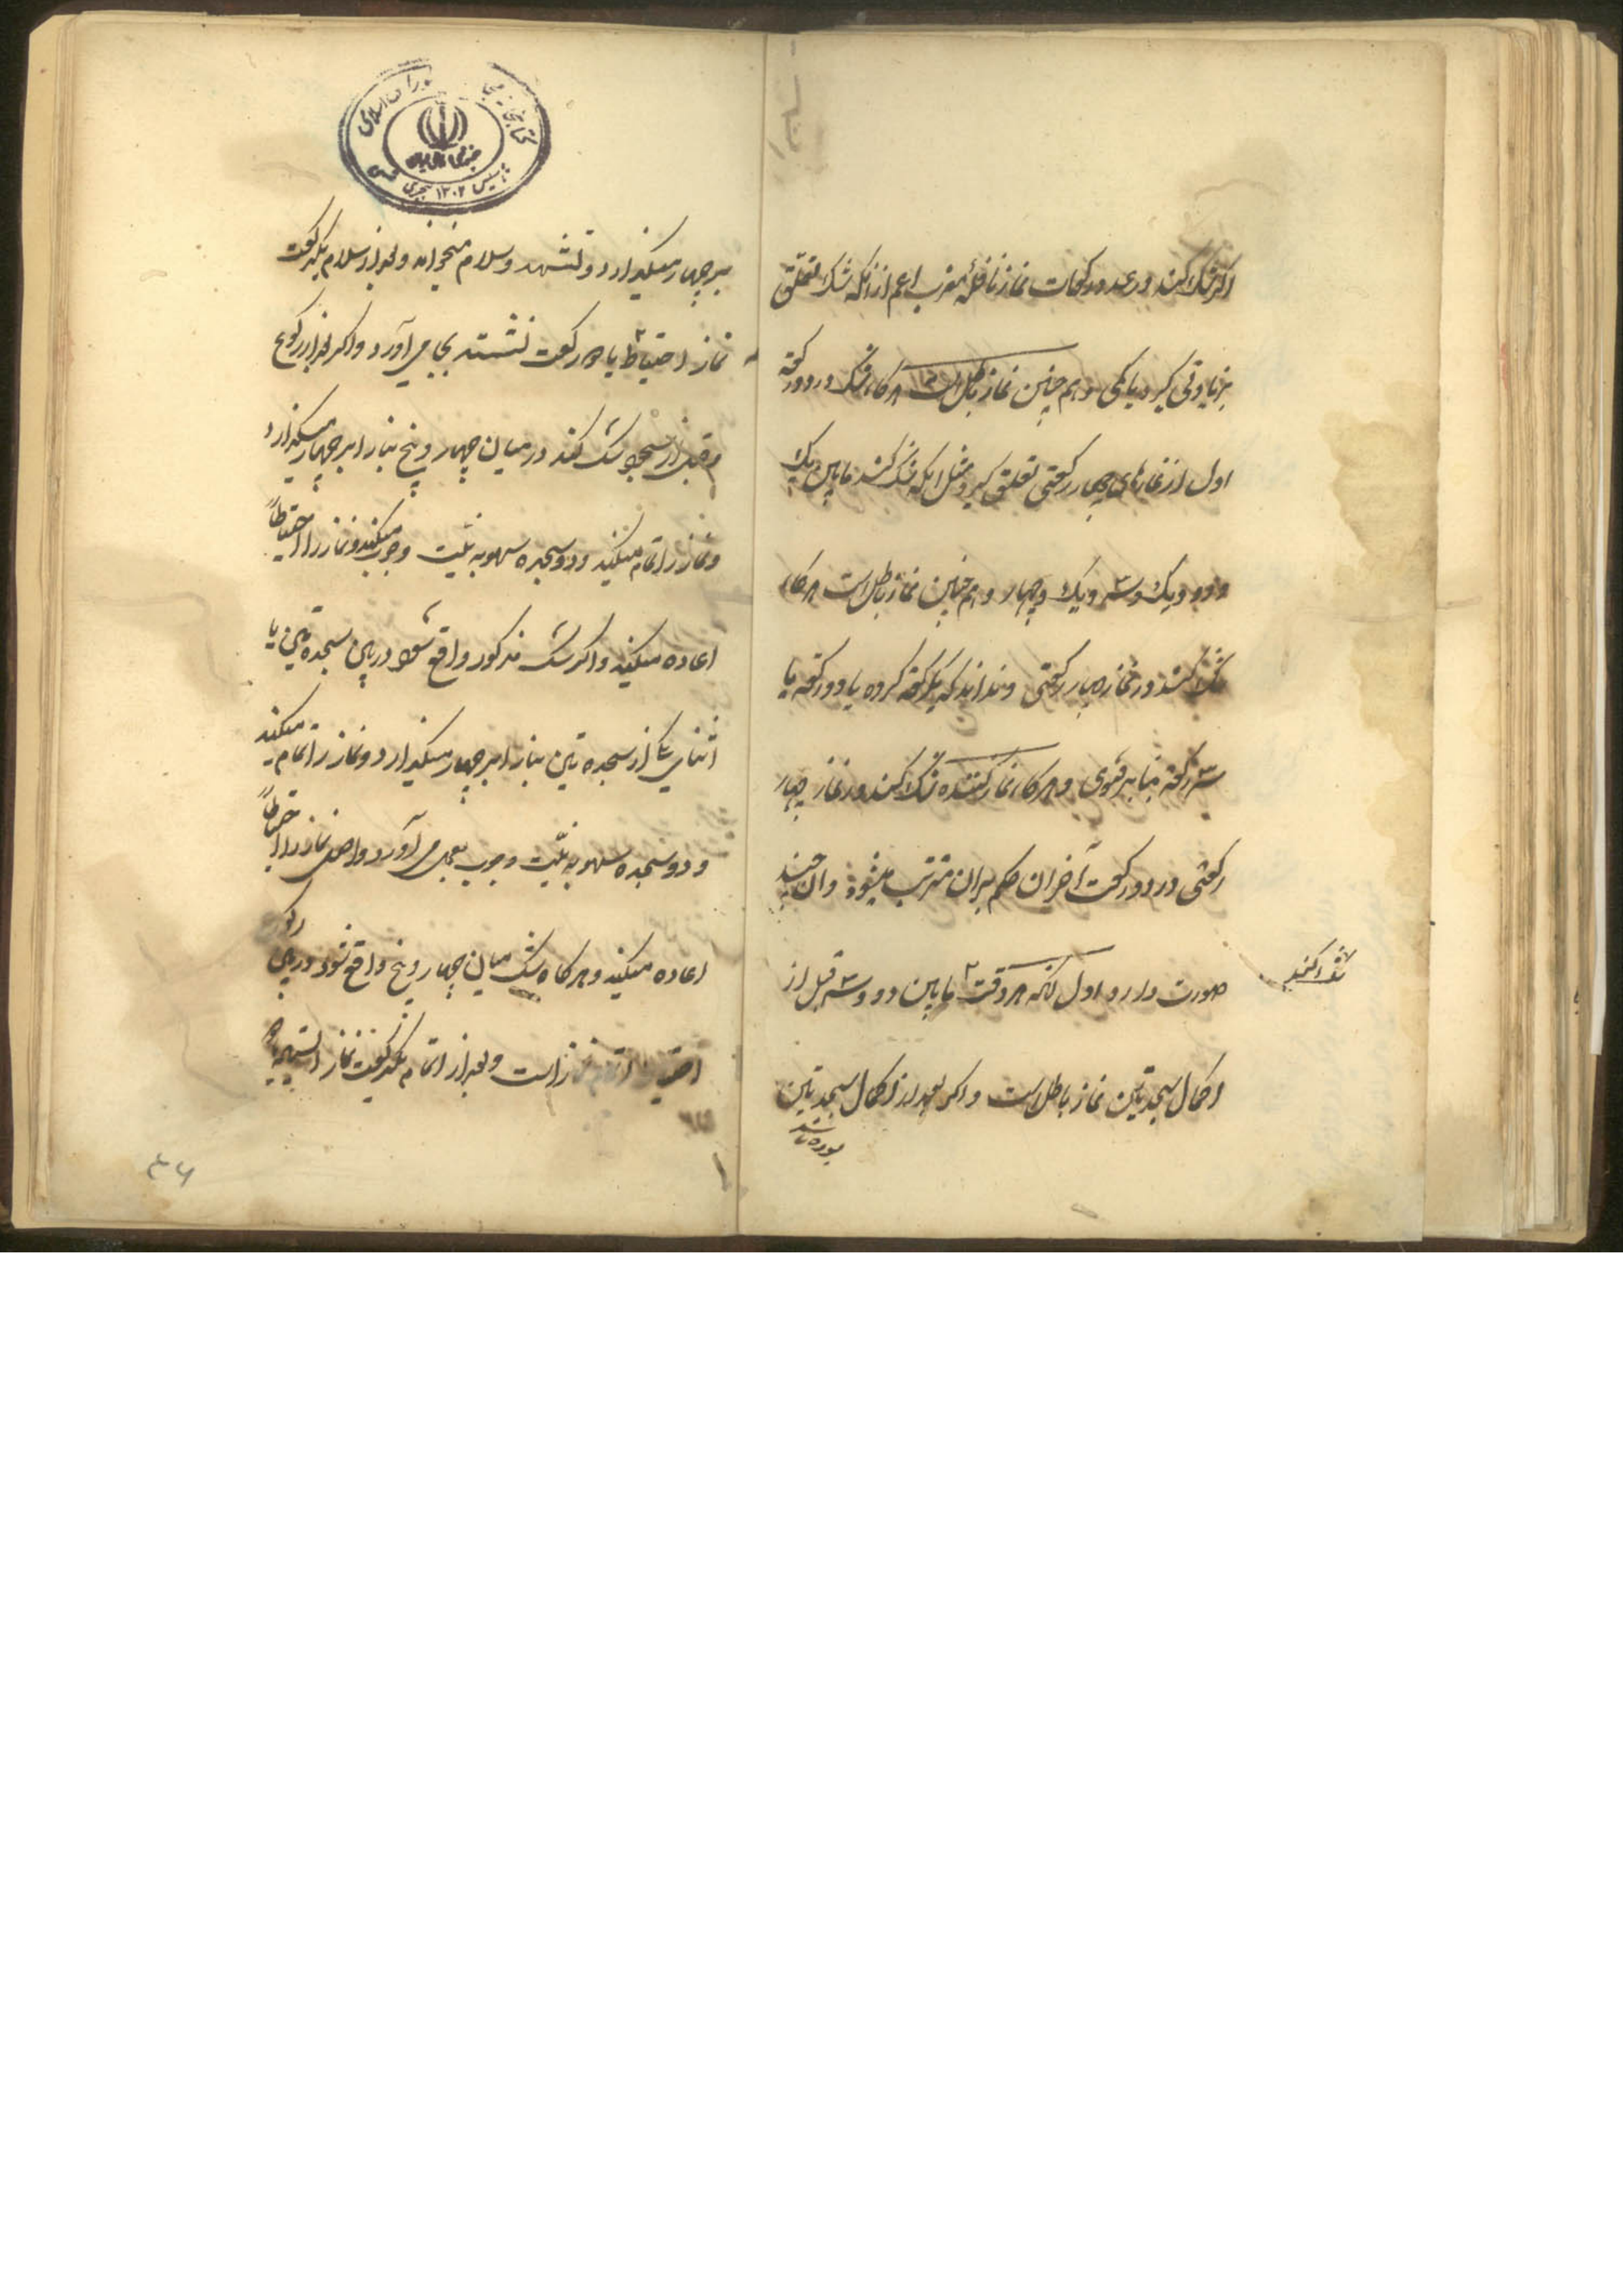 اگر شک کند در عدد رکعات نماز نافله مغرب اعم از انکه شک تعلق
بزیادتی گیرد یا کمی و هم چنین نماز باطل است هرگاه شک در دو رکعت
اول از نمازهای چهار رکعتی تعلق گیرد مثل اینکه شک کند مابین یک
و دو و یک و سه و یک و چهار و هم چنین نماز باطل است هرگاه
شک کند در نماز چهار رکعتی و نداند که یکرکعت کرده یا دو رکعت یا
سه رکعت بنابر فتوی و هرگاه نماز کننده شک کند در نماز چهار
رکعتی در دو رکعت آخر ان حکم بران مترتب میشود و ان چند
صورت دارد اول انکه هر وقت مابین دو و سه قبل از
شک کند
اکمال سجدتین نماز باطل است و اگر بعد از اکمال سجدتین
بوده باشد
بر چهار میگذارد و تشهد و سلام میخواند و بعد از سلام یکرکعت
نماز احتیاط یا دو رکعت نشسته بجا می آورد و اگر بعد از رکوع
و قبل از سجود شک کند در میان چهار و پنج بنا را بر چهار میگذارد
و نماز را تمام میکند و دو سجده سهو به نیت وجوب میکند و نماز را احتیاطاً
اعاده میکند و اگر شک مذکور واقع شود در بین سجدتین یا
اثنای یکی از سجدتین بنا را بر چهار میگذارد و نماز را تمام میکند
و دو سجده سهو به نیت وجوب بعمل می آورد و اصل نماز را احتیاطاً
اعاده میکند و هرگاه شک میان چهار و پنج واقع شود در بین رکوع
احتیاط اتمام نماز است و بعد از اتمام یکرکعت نماز ایستاده
۳۶
تاسیس ۱۳۰۲ هجری